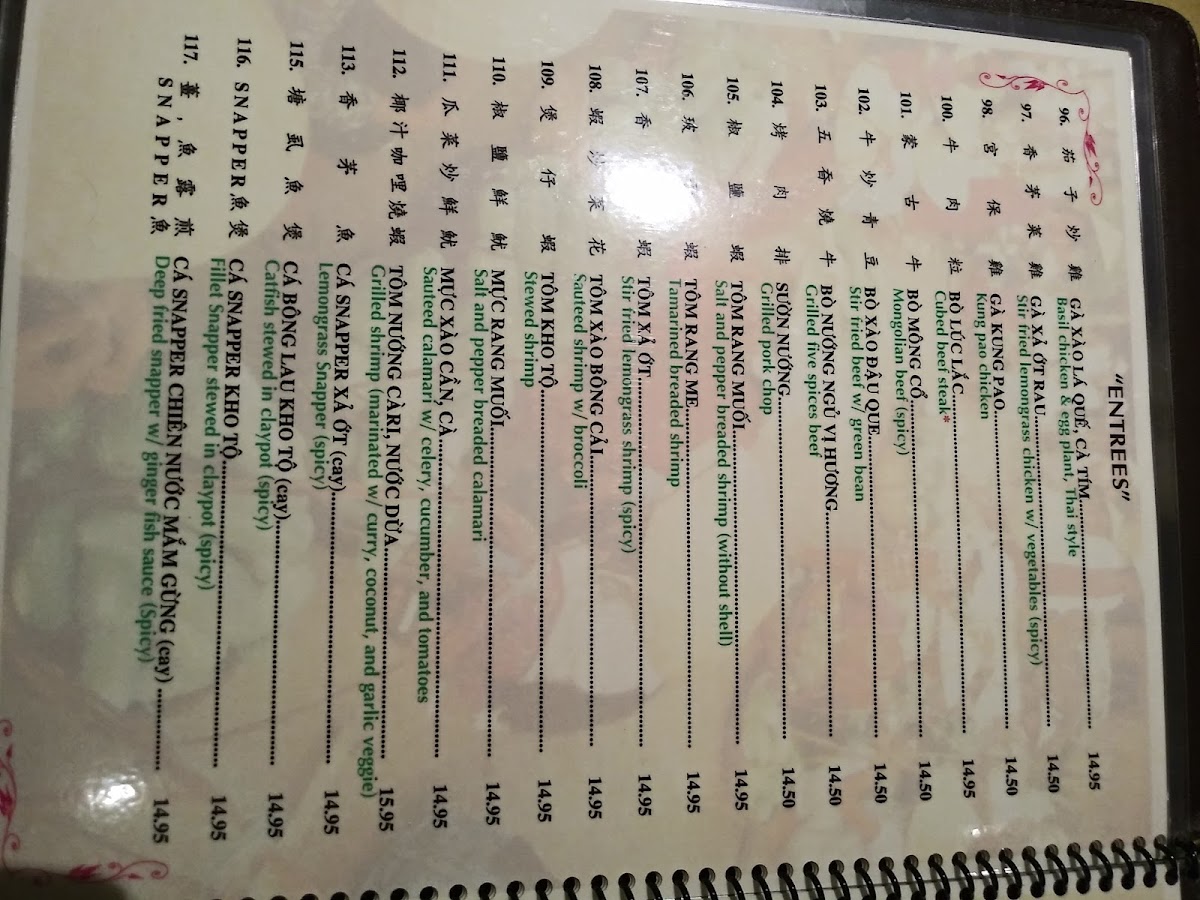 "ENTREES"
96. 茄子炒雞 GÀ XÀO LÁ QUẾ, CÀ TÍM 14.95
Basil chicken & egg plant, Thai style
97. 香茅菜雞 GÀ XẢ ỚT RAU 14.50
Stir fried lemongrass chicken w/ vegetables (spicy)
98. 宮保雞 GÀ KUNG PAO 14.50
Kung pao chicken
100. 牛肉粒 BÒ LÚC LẮC 14.95
Cubed beef steak*
101. 蒙古牛 BÒ MÔNG CỔ 14.50
Mongolian beef (spicy)
102. 牛炒青豆 BÒ XÀO ĐẬU QUE 14.50
Stir fried beef w/ green bean
103. 五香燒牛 BÒ NƯỚNG NGỦ VỊ HƯƠNG 14.50
Grilled five spices beef
104. 烤肉排 SƯỜN NƯỚNG 14.50
Grilled pork chop
105. 椒鹽蝦 TÔM RANG MUỐI 14.95
Salt and pepper breaded shrimp (without shell)
106. 玻 蝦 TÔM RANG ME 14.95
Tamarined breaded shrimp
107. 香 蝦 TÔM XẢ ỚT 14.95
Stir fried lemongrass shrimp (spicy)
108. 蝦炒菜花 TÔM XÀO BÔNG CẢI 14.95
Sauteed shrimp w/ broccoli
109. 煲仔蝦 TÔM KHO TỘ 14.95
Stewed shrimp
110. 椒鹽鮮魷 MỰC RANG MUỐI 14.95
Salt and pepper breaded calamari
111. 瓜菜炒鮮魷 MỰC XÀO CẦN, CÀ 14.95
Sauteed calamari w/ celery, cucumber, and tomatoes
112. 椰汁咖哩燒蝦 TÔM NƯỚNG CÀRI, NƯỚC DỪA 15.95
Grilled shrimp (marinated w/ curry, coconut, and garlic veggie)
113. 香茅魚 CÁ SNAPPER XẢ ỚT (cay) 14.95
Lemongrass Snapper (spicy)
115. 塘虱魚煲 CÁ BÔNG LAU KHO TỘ (cay) 14.95
Catfish stewed in claypot (spicy)
116. SNAPPER魚煲 CÁ SNAPPER KHO TỘ 14.95
Fillet Snapper stewed in claypot (spicy)
117. 薑,魚露煎 CÁ SNAPPER CHIÊN NƯỚC MẮM GỪNG (cay) 14.95
SNAPPER魚 Deep fried snapper w/ ginger fish sauce (Spicy)